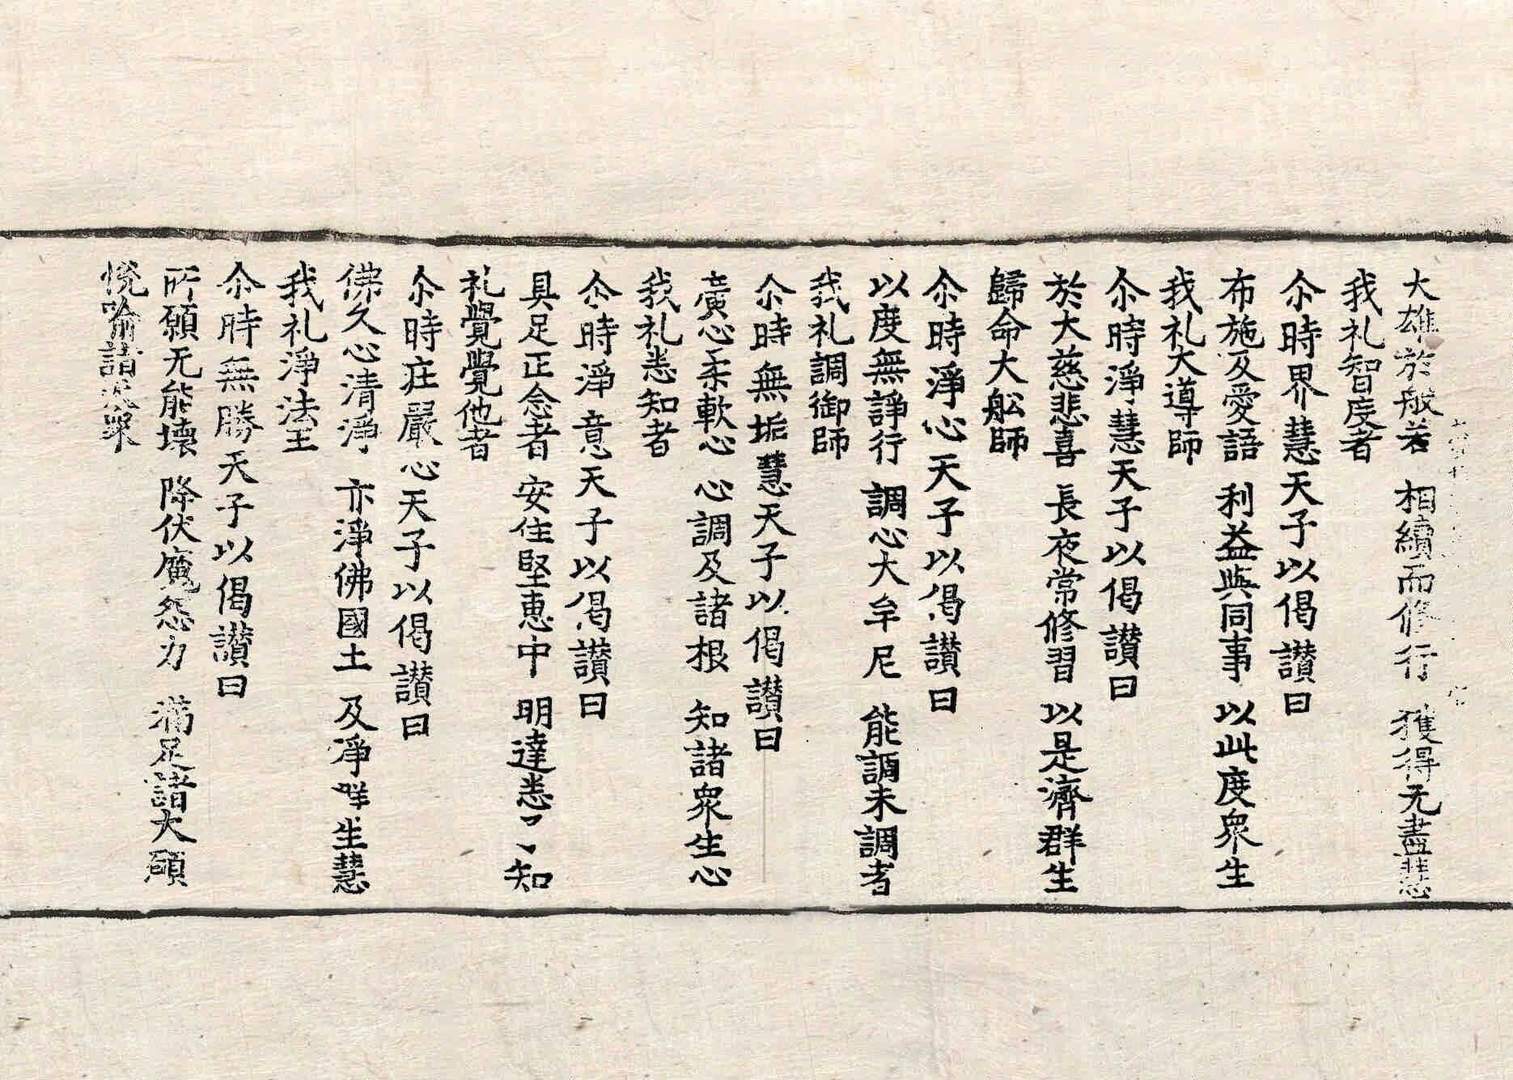 大雄於般若　相續而修行　獲得无盡慧
我礼智度者
尒時界慧天子以偈讃曰
布施及愛語　利益與同事　以此度衆生
我礼大導師
尒時淨慧天子以偈讃曰
於大慈悲喜　長夜常修習　以是濟群生
歸命大舩師
尒時淨心天子以偈讃曰
以度無諍行　調心大牟尼　能調未調者
我礼調御師
尒時無垢慧天子以偈讃曰
廣心柔軟心　心調及諸根　知諸衆生心
我礼悉知者
尒時淨意天子以偈讃曰
具足正念者　安住堅惠中　明達悉了知
礼覺覺他者
尒時庄嚴心天子以偈讃曰
佛久心清淨　亦淨佛國土　及淨咩生慧
我礼淨法王
尒時無勝天子以偈讃曰
所願无能壞　降伏魔怨力　滿足諸大願
悅喻諸天衆